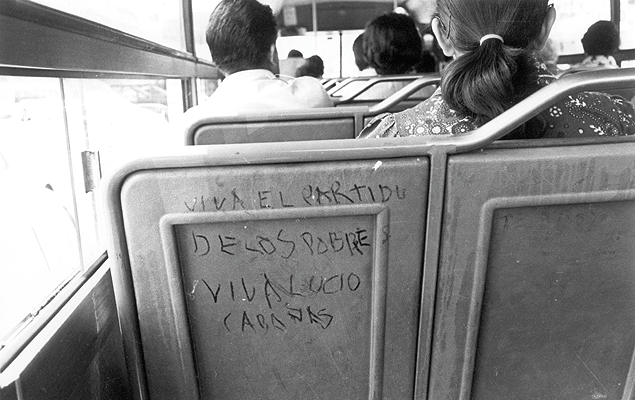 VIVA EL PARTIDO
DE LOS POBRES
VIVA LUCIO
CABAÑAS